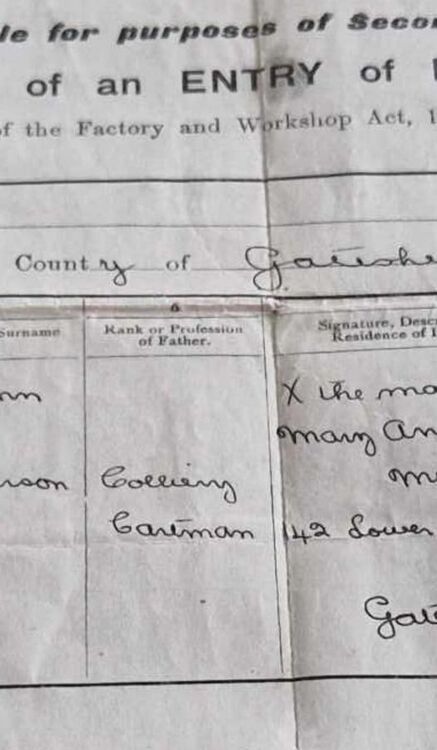 le for purposes of Secon
of an ENTRY of
of the Factory and Workshop Act, 1
County of Gateshe
6
Surname
Rank or Profession
of Father.
Signature, Descr
Residence of I
nn
X the ma
Mary An
rson
Colliery
m
Cartman
142 Lower
Gat